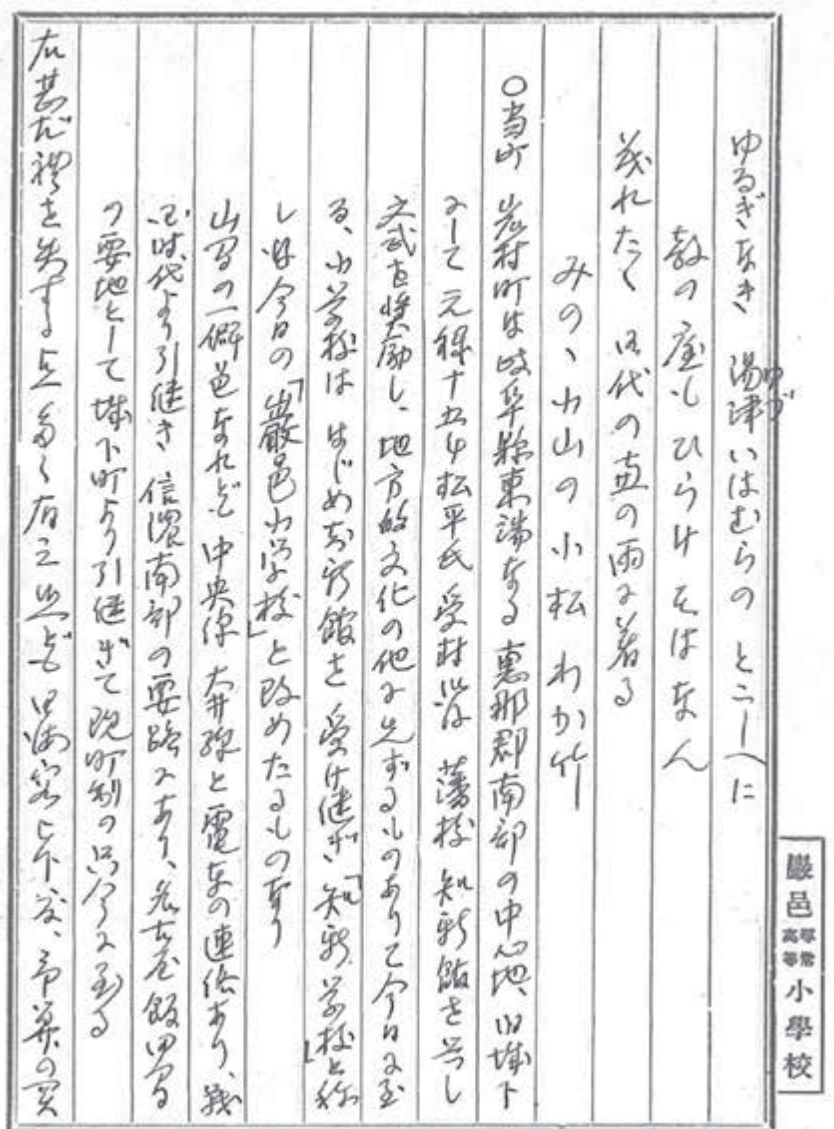 ゆるぎなき 湯津いはむらの とこしへに
ゆづ
教の庭もひらけそはなん
茂れたゞ 御代の恵の雨に着る
みのゝ小山の 小松 わか竹
○当町 岩村町は岐阜縣東端なる 恵那郡南部の中心地、旧城下
にして 元禄十五年松平氏 受封以后 藩校 知新館を興し
文武を奨励し、地方的文化の他に先ずるものありて今日に至
る、小学校は はじめ知新館を 受け継ぎ、「知新学校」と称
し後今日の「巌邑小学校」と改めたるものなり
山間の一僻邑なれども 中央線 大井駅と電車の連絡あり、戦
国時代より引継き 信濃南部の要路にあり、名古屋飯田間
の要地として 城下町より引継ぎて現町制の只今に至る
右甚だ禮を失する点多く有之候へども 御海容被下度、
巖邑 尋常高等 小學校